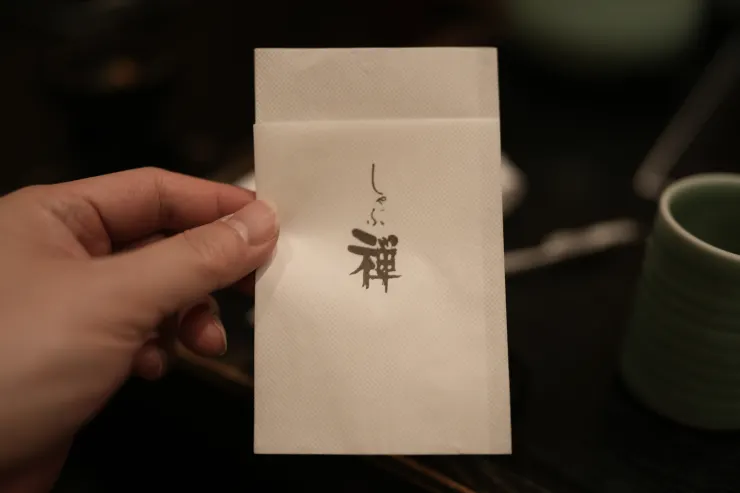 しゃぶ禅